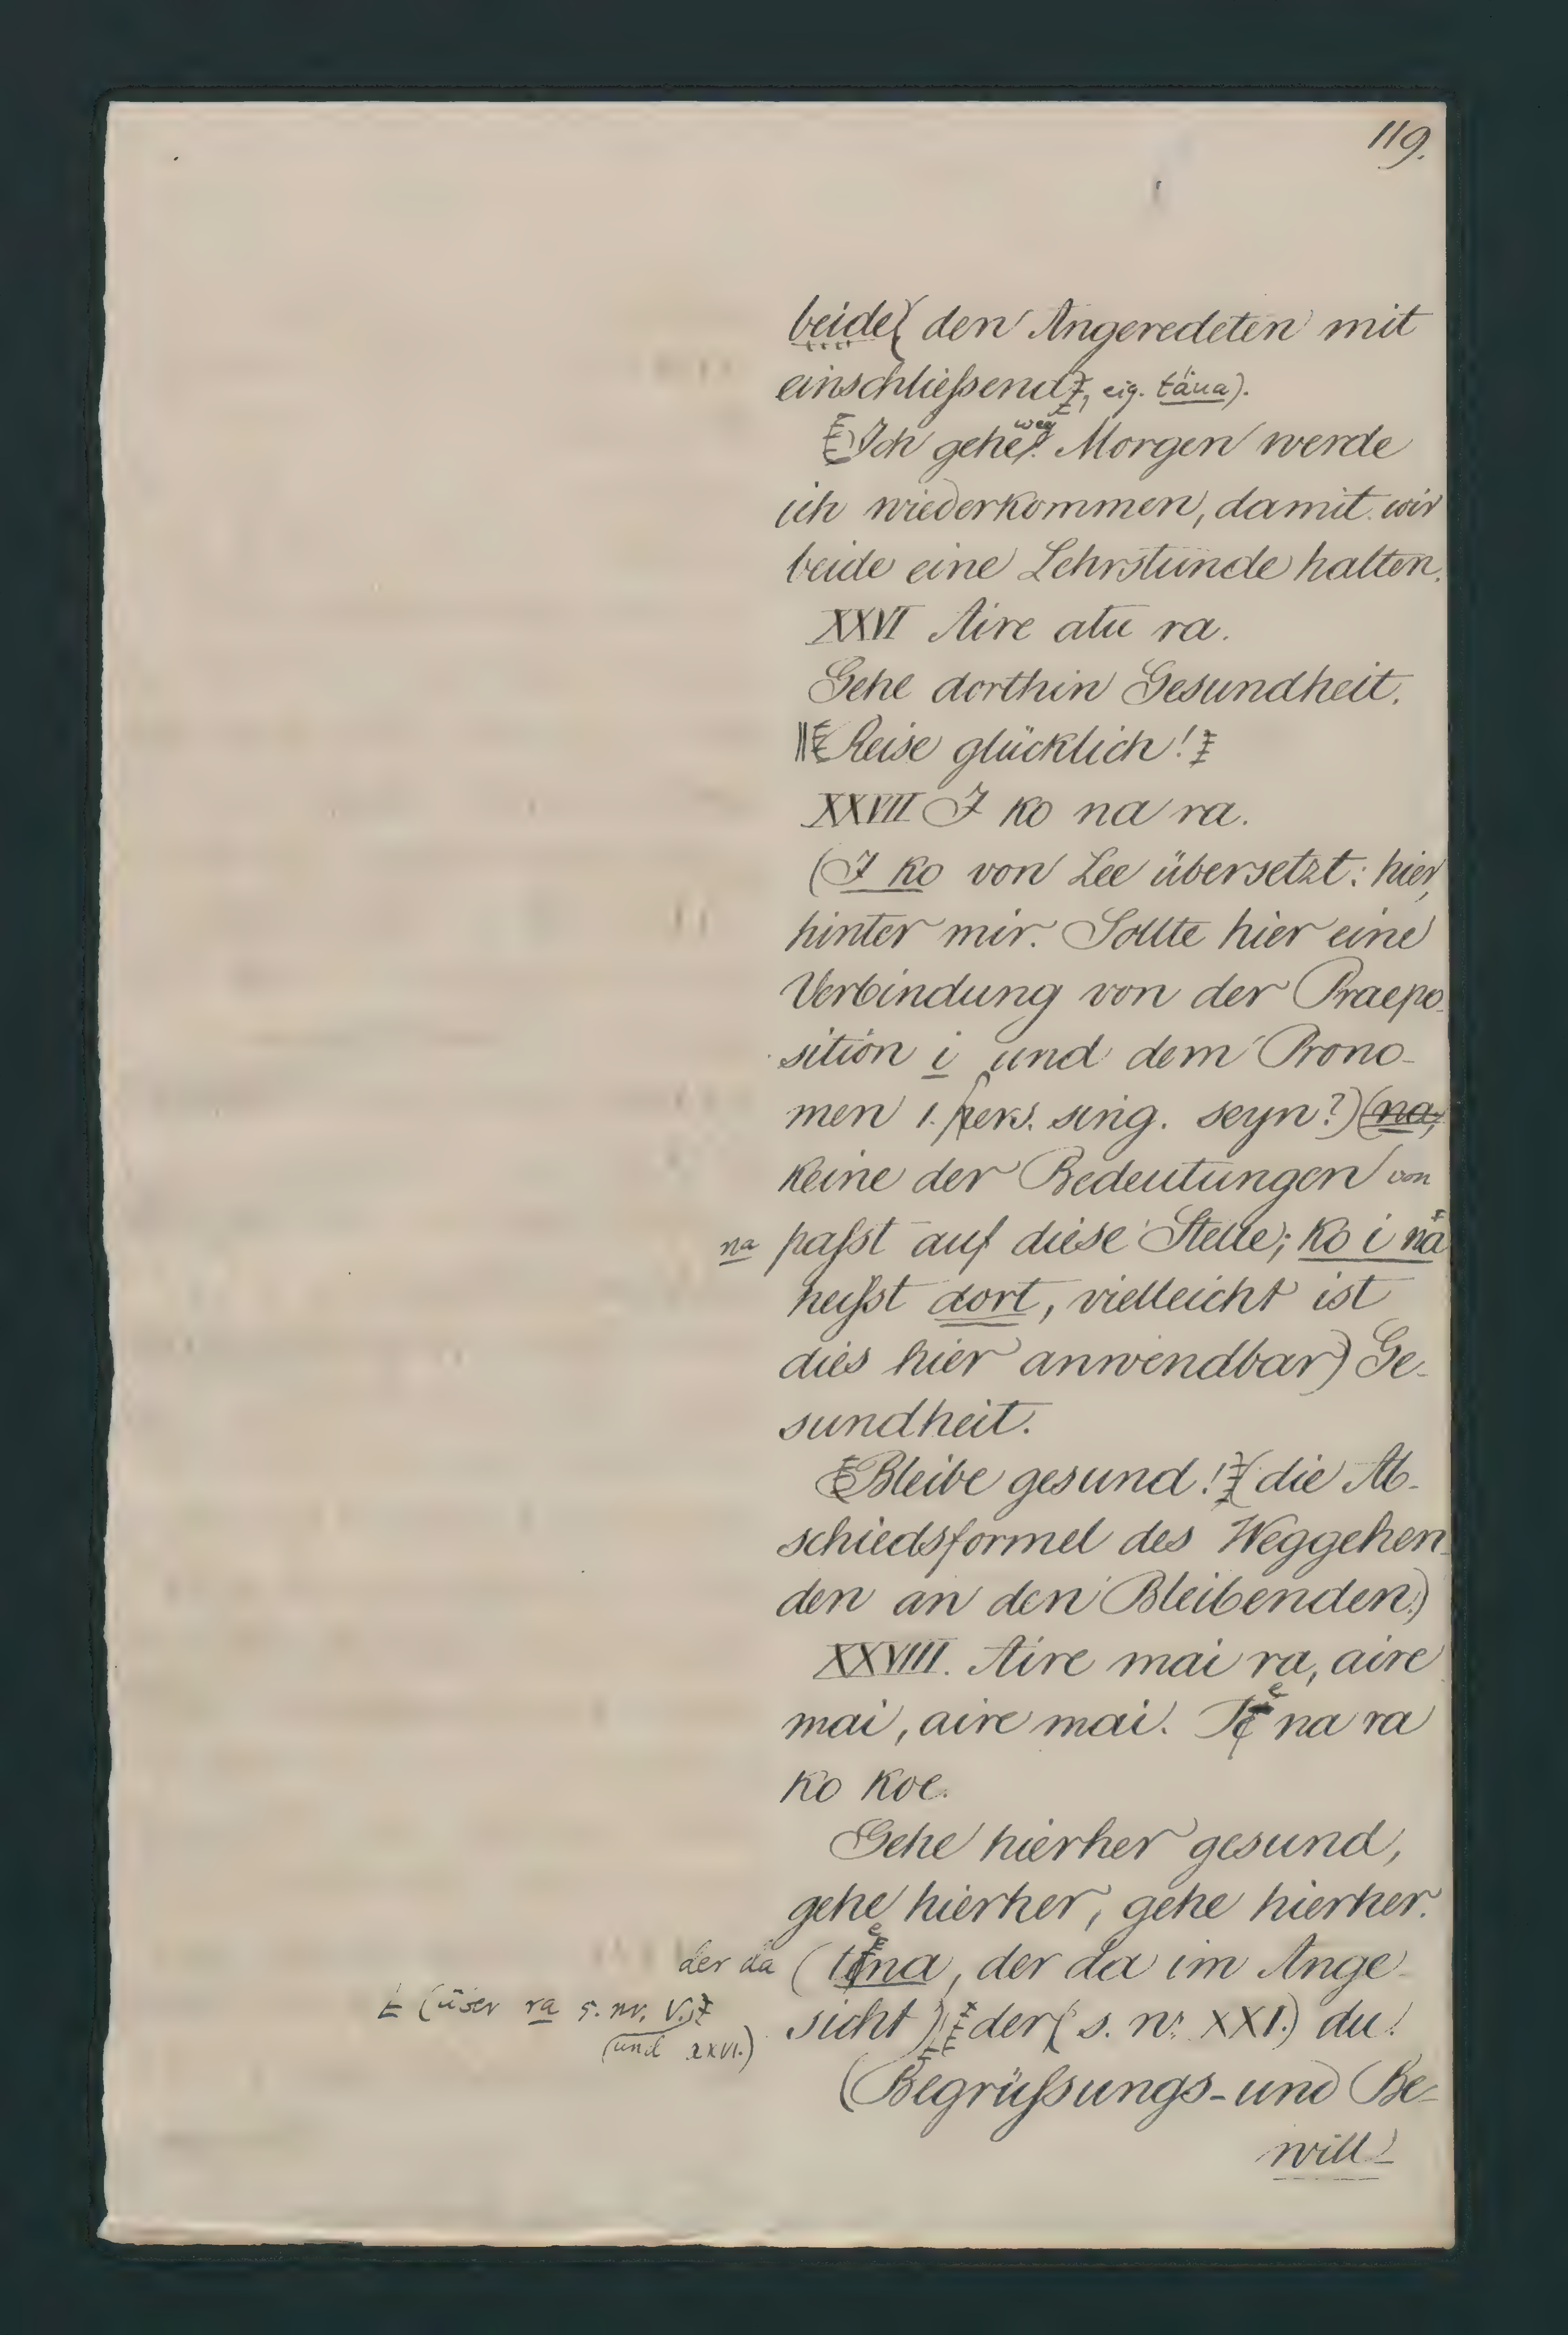 119.
beide( den Angeredeten mit
einschließend), eig. täua).
Ich gehe weg. Morgen werde
ich wiederkommen, damit wir
beide eine Lehrstunde halten.
XXVI Aire atu ra.
Gehe dorthin Gesundheit.
Reise glücklich!
XXVII I ko na ra.
(I ko von Lee übersetzt: hier,
hinter mir. Sollte hier eine
Verbindung von der Praepo-
sition i und dem Prono-
men 1. pers. sing. seyn?) (na,
keine der Bedeutungen von
na paßt auf diese Stelle; ko i na
heißt dort, vielleicht ist
dies hier anwendbar) Ge-
sundheit.
Bleibe gesund! (die Ab-
schiedsformel des Weggehen-
den an den Bleibenden.)
XXVIII. Aire mai ra, aire
mai, aire mai. Te na ra
ko koe.
Gehe hierher gesund,
gehe hierher, gehe hierher.
der da (tena, der da im Ange-
sicht) der( s. nr. XXI.) du!
(über ra s. nr. V.)
(und XXVI.)
(Begrüßungs- und Be-
will-